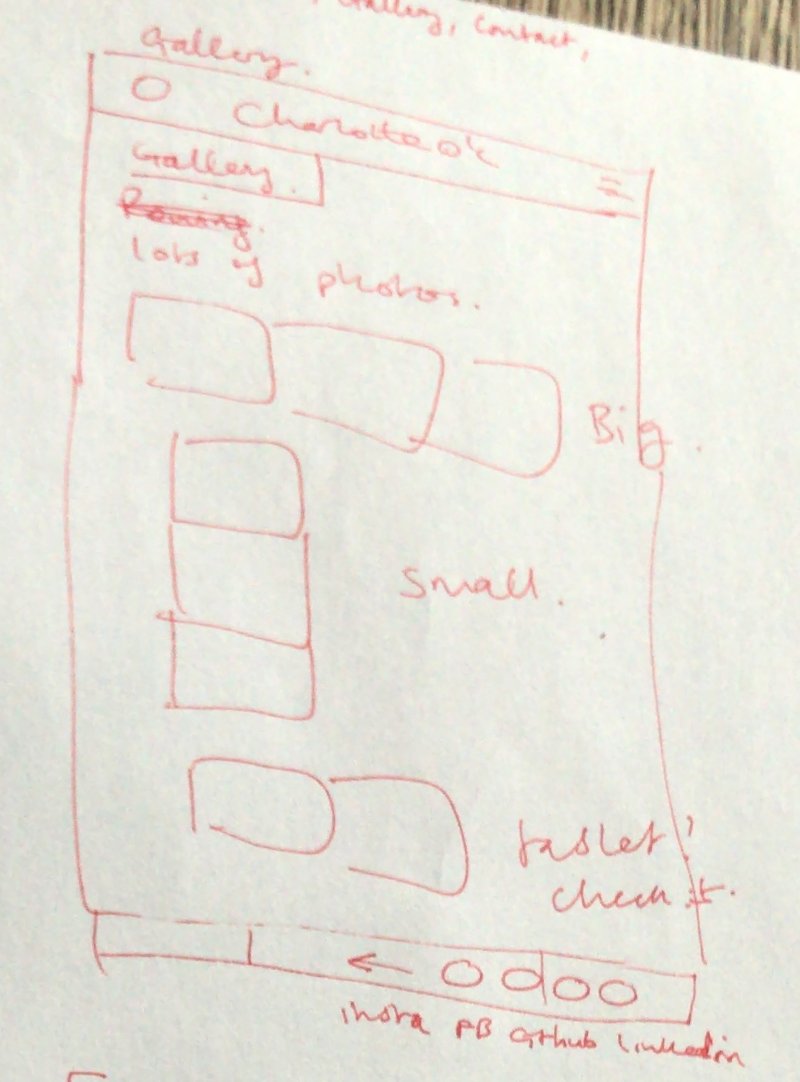 Gallery, Contact,
Gallery.
Gallery.
lots of photos.
Big.
Small.
tablet?
check it.
insta FB Github Linkedin